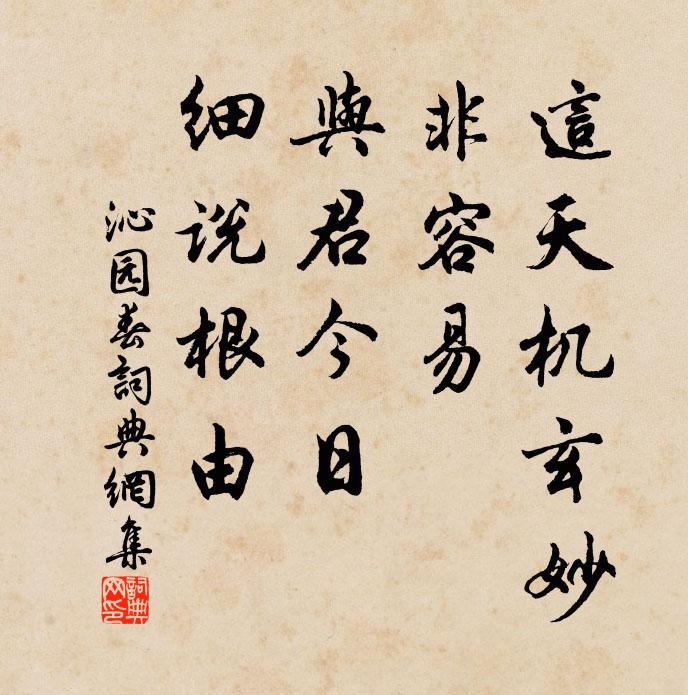 這天机玄妙
非容易
與君今日
细说根由
沁园春詞典網集
詞典网印